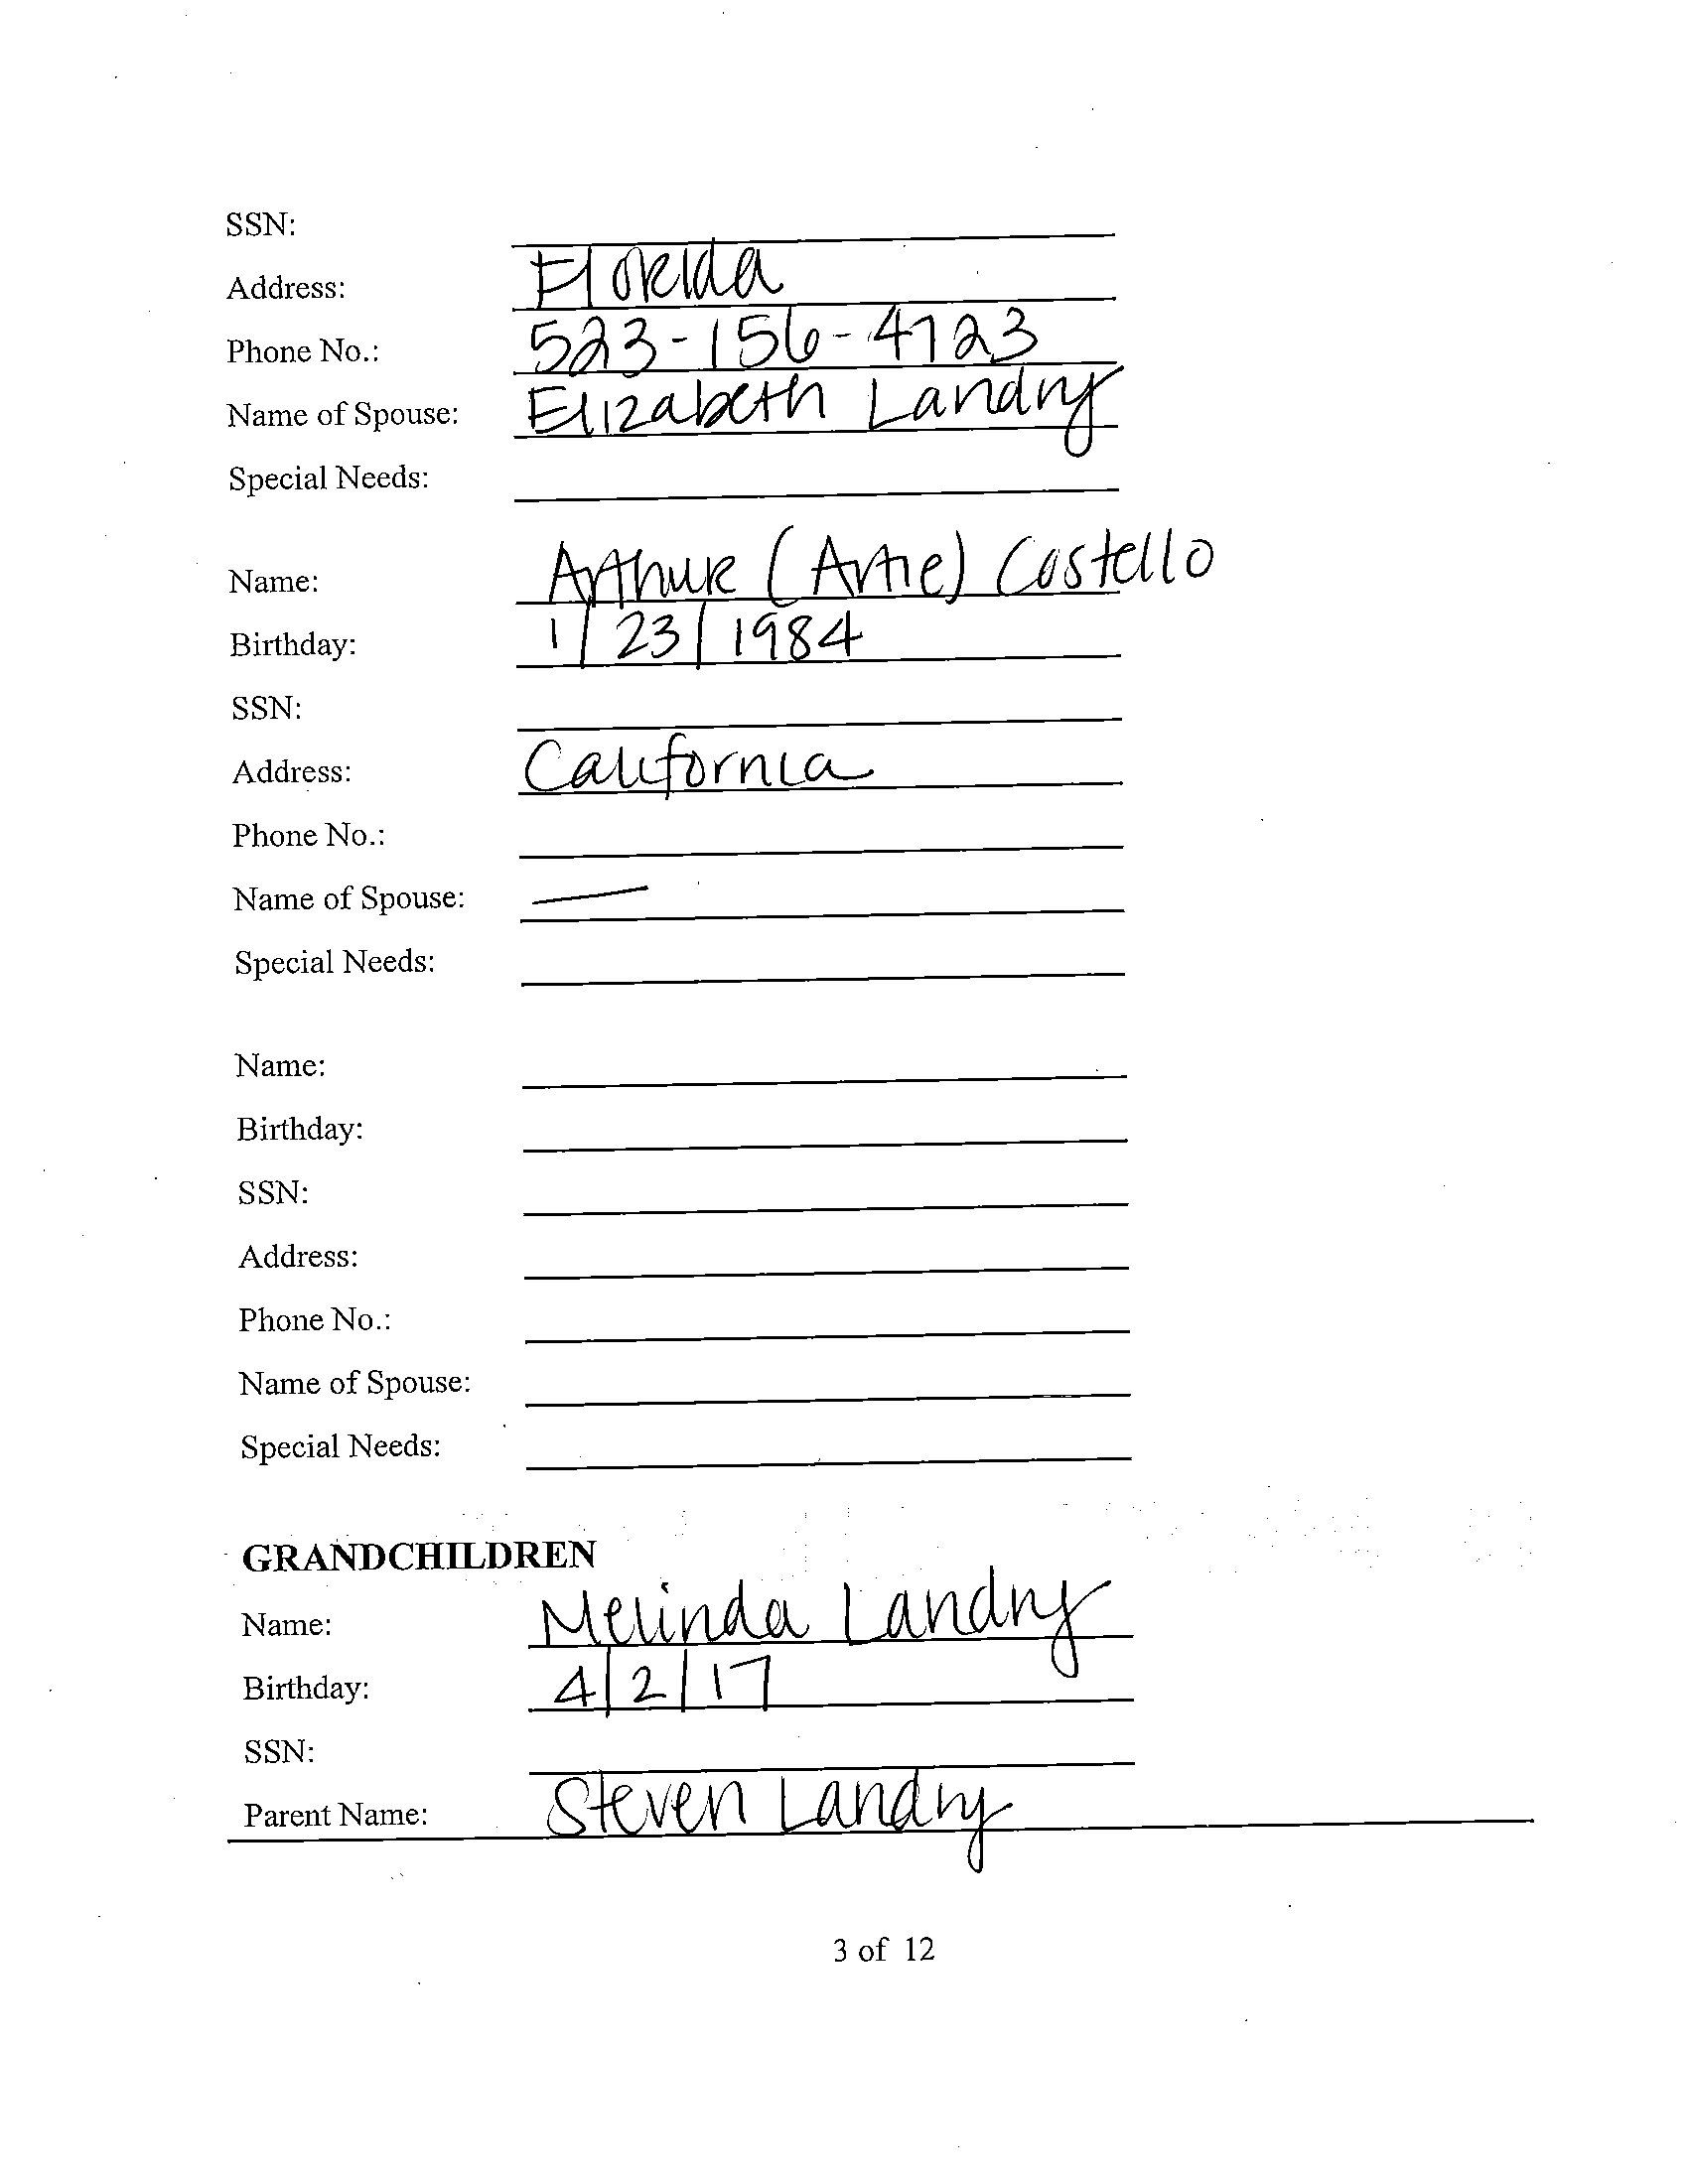 SSN:
Address: Florida
Phone No.: 523-156-4723
Name of Spouse: Elizabeth Landry
Special Needs:
Name: Arthur (Artie) Costello
Birthday: 1/23/1984
SSN:
Address: California
Phone No.:
Name of Spouse: —
Special Needs:
Name:
Birthday:
SSN:
Address:
Phone No.:
Name of Spouse:
Special Needs:
GRANDCHILDREN
Name: Melinda Landry
Birthday: 4/2/17
SSN:
Parent Name: Steven Landry
3 of 12